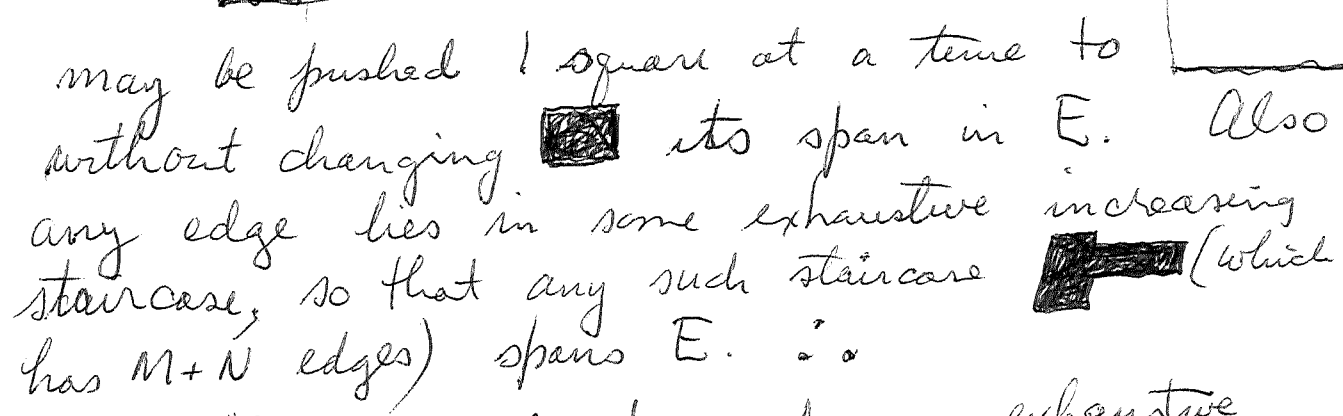 may be pushed 1 square at a time to
without changing its span in E. Also
any edge lies in some exhaustive increasing
staircase, so that any such staircase (which
has M+N edges) spans E. ∴
exhaustive